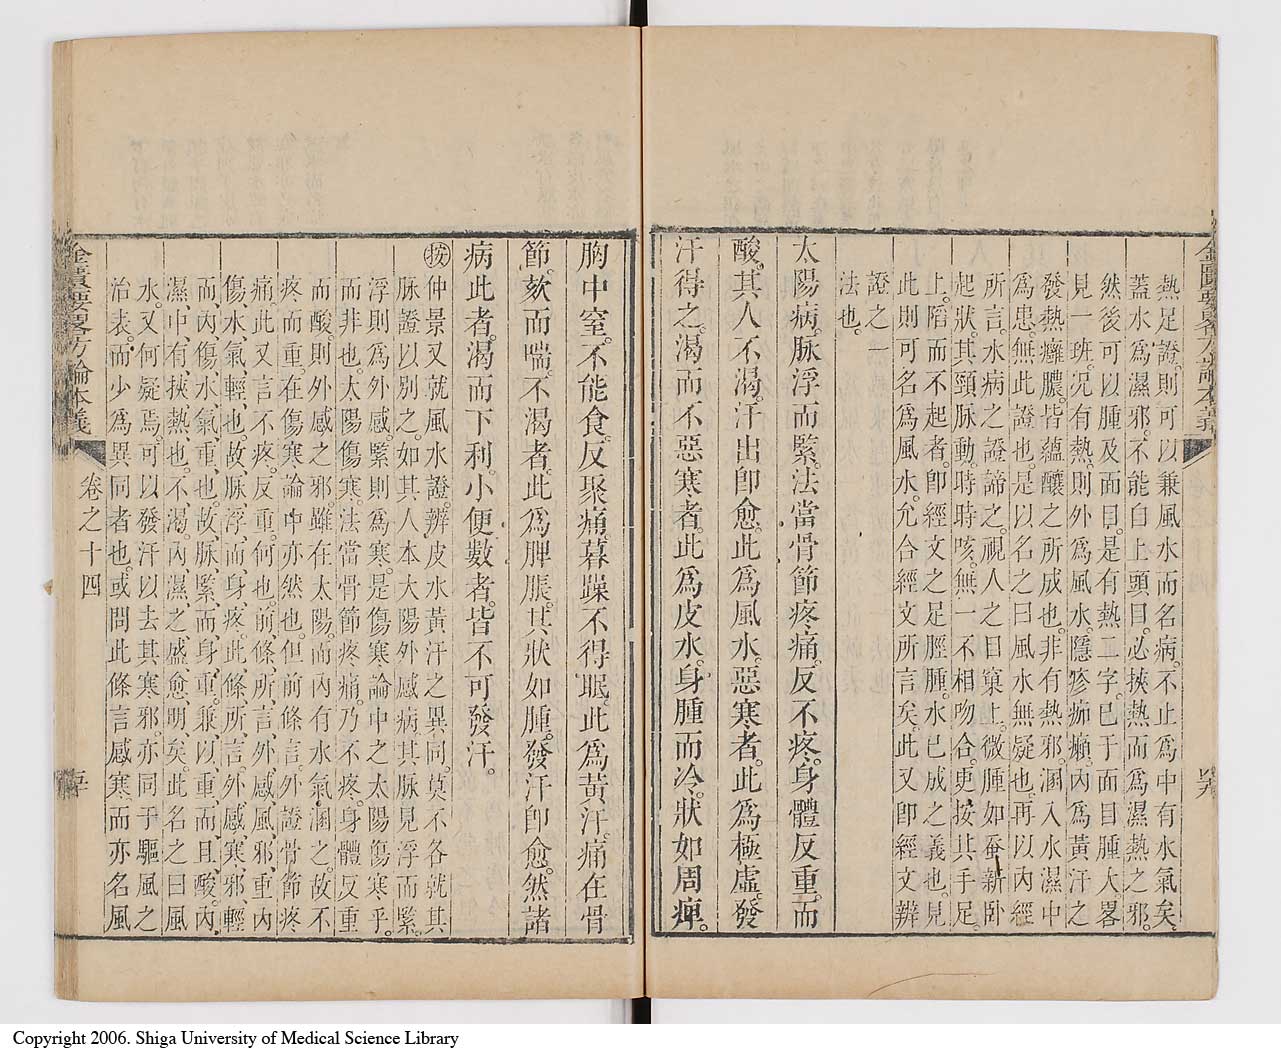 金匱要畧方論本義
熱足證則可以兼風水而名病不止爲中有水氣矣
蓋水爲濕邪不能自上頭目必挾熱而爲濕熱之邪
然後可以腫及面目是有熱二字已于面目腫大畧
見一班况有熱則外爲風水隱疹痂癩內爲黃汗之
發熱癰膿皆蘊釀之所成也非有熱邪溷入水濕中
爲患無此證也是以名之曰風水無疑也再以內經
所言水病之證諦之視人之目窠上微腫如蚕新卧
起狀其頸脉動時時咳無一不相吻合更按其手足
上陷而不起者卽經文之足脛腫水已成之義也見
此則可名爲風水允合經文所言矣此又卽經文辨
證之一
法也
太陽病。脉浮而緊。法當骨節疼痛。反不疼。身體反重。而
酸。其人不渴。汗出卽愈。此爲風水。惡寒者。此爲極虛。發
汗得之。渴而不惡寒者。此爲皮水。身腫而冷。狀如周痺。
胸中窒。不能食。反聚痛。暮躁不得眠。此爲黃汗。痛在骨
節。欬而喘。不渴者。此爲脾脹。其狀如腫。發汗卽愈。然諸
病此者。渴而下利。小便數者。皆不可發汗。
按仲景又就風水證。辨皮水黃汗之異同。莫不各就其
脉證以別之。如其人本太陽外感病其脉見浮而緊。
浮則爲外感。緊則爲寒。是傷寒論中之太陽傷寒乎。
而非也。太陽傷寒。法當骨節疼痛。乃不疼。身體反重
而酸。則外感之邪雖在太陽。而內有水氣溷之。故不
疼而重。在傷寒論中亦然也。但前條言外證骨節疼
痛。此又言不疼。反重。何也。前條所言外感風邪。重內
傷水氣輕也。故脉浮而身疼。此條所言外感寒邪輕
而內傷水氣重也。故脉緊而身重。兼以重而且酸。內
濕中有挾熱也。不渴。內濕之盛愈明矣。此名之曰風
水。又何疑焉。可以發汗以去其寒邪。亦同于驅風之
治表。而少爲異同者也。或問此條言感寒。而亦名風
金匱要畧方論本義
卷之十四
五十
Copyright 2006. Shiga University of Medical Science Library